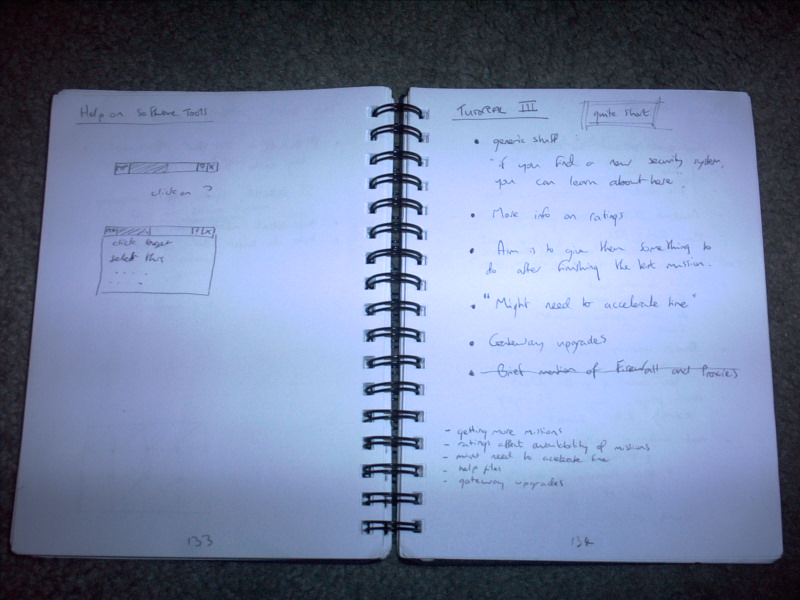 Help on Software Tools
? X
click on ?
? X
click target
select this
133
TUTORIAL III
quite short
• generic stuff
"if you find a new security system,
you can learn about here".
• More info on ratings
• Aim is to give them something to
do after finishing the test mission.
• "Might need to accelerate time"
• Gateway upgrades
• Brief mention of Firewall and Proxies
- getting more missions
- ratings affect availability of missions
- might need to accelerate time
- help files
- gateway upgrades
134